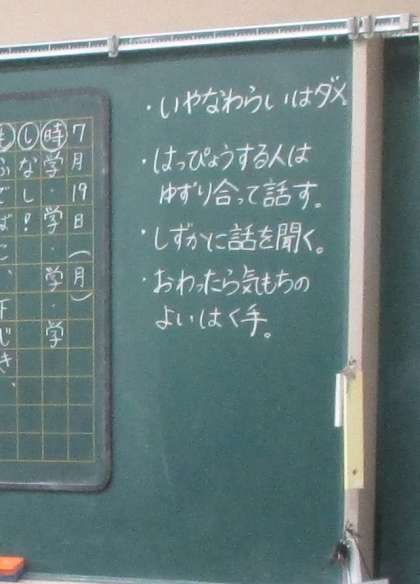 ・いやなわらいはダメ。
・はっぴょうする人は
ゆずり合って話す。
・しずかに話を聞く。
・おわったら気もちの
よいはく手。
7月19日(月)
時 学・学・学・学
し なし!
ふでばこ、下じき、